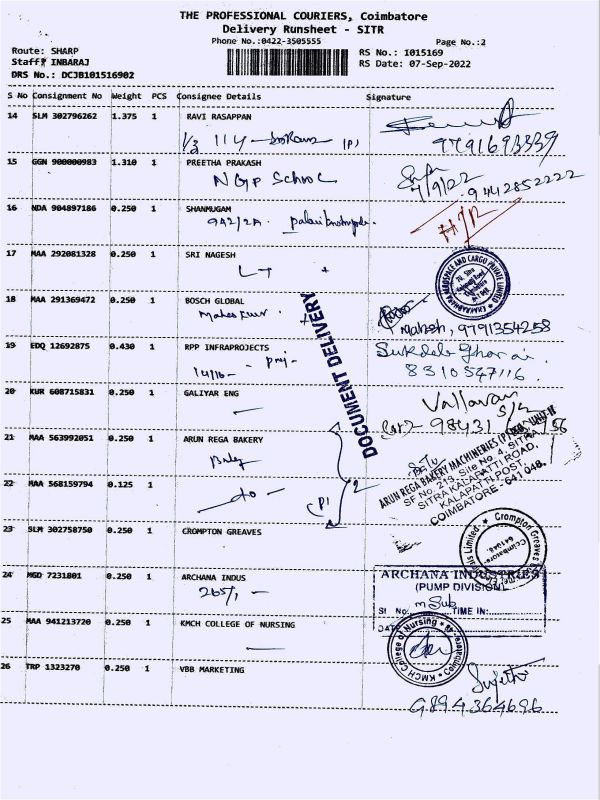 THE PROFESSIONAL COURIERS, Coimbatore
Delivery Runsheet - SITR
Phone No.:0422-3505555
Page No.:2
Route: SHARP
RS No.: I015169
Staff: INBARAJ
RS Date: 07-Sep-2022
DRS No.: DCJB101516902
S No Consignment No Weight PCS Consignee Details Signature
14 SLM 302796262 1.375 1 RAVI RASAPPAN
1/3 114 (P)
9791693339
15 GGN 900000983 1.310 1 PREETHA PRAKASH
NGP School
7/9/22 9442852222
16 NDA 904897186 0.250 1 SHANMUGAM
942/2A
17 MAA 292081328 0.250 1 SRI NAGESH
LT
18 MAA 291369472 0.250 1 BOSCH GLOBAL
Mahesh, 9791354258
19 EDQ 12692875 0.430 1 RPP INFRAPROJECTS
14/16
Sukdeb Gharai
8310547116
20 KUR 608715831 0.250 1 GALIYAR ENG
DOCUMENT DELIVERY
Vallavan
98431
21 MAA 563992051 0.250 1 ARUN REGA BAKERY
ARUN REGA BAKERY MACHINERIES (P) LTD., UNIT-II
SF No. 213, Site No. 4, SITRA
SITRA KALAPATTI ROAD,
KALAPATTI POST,
COIMBATORE - 641 048.
22 MAA 568159794 0.125 1
do
(P)
2
23 SLM 302758750 0.250 1 CROMPTON GREAVES
24 MGD 7231801 0.250 1 ARCHANA INDUS
265/1
ARCHANA INDUSTRIES
(PUMP DIVISION)
Sl No. TIME IN:
DATE
25 MAA 941213720 0.250 1 KMCH COLLEGE OF NURSING
KMCH College of Nursing
26 TRP 1323270 0.250 1 VBB MARKETING
Sujith
9894364696